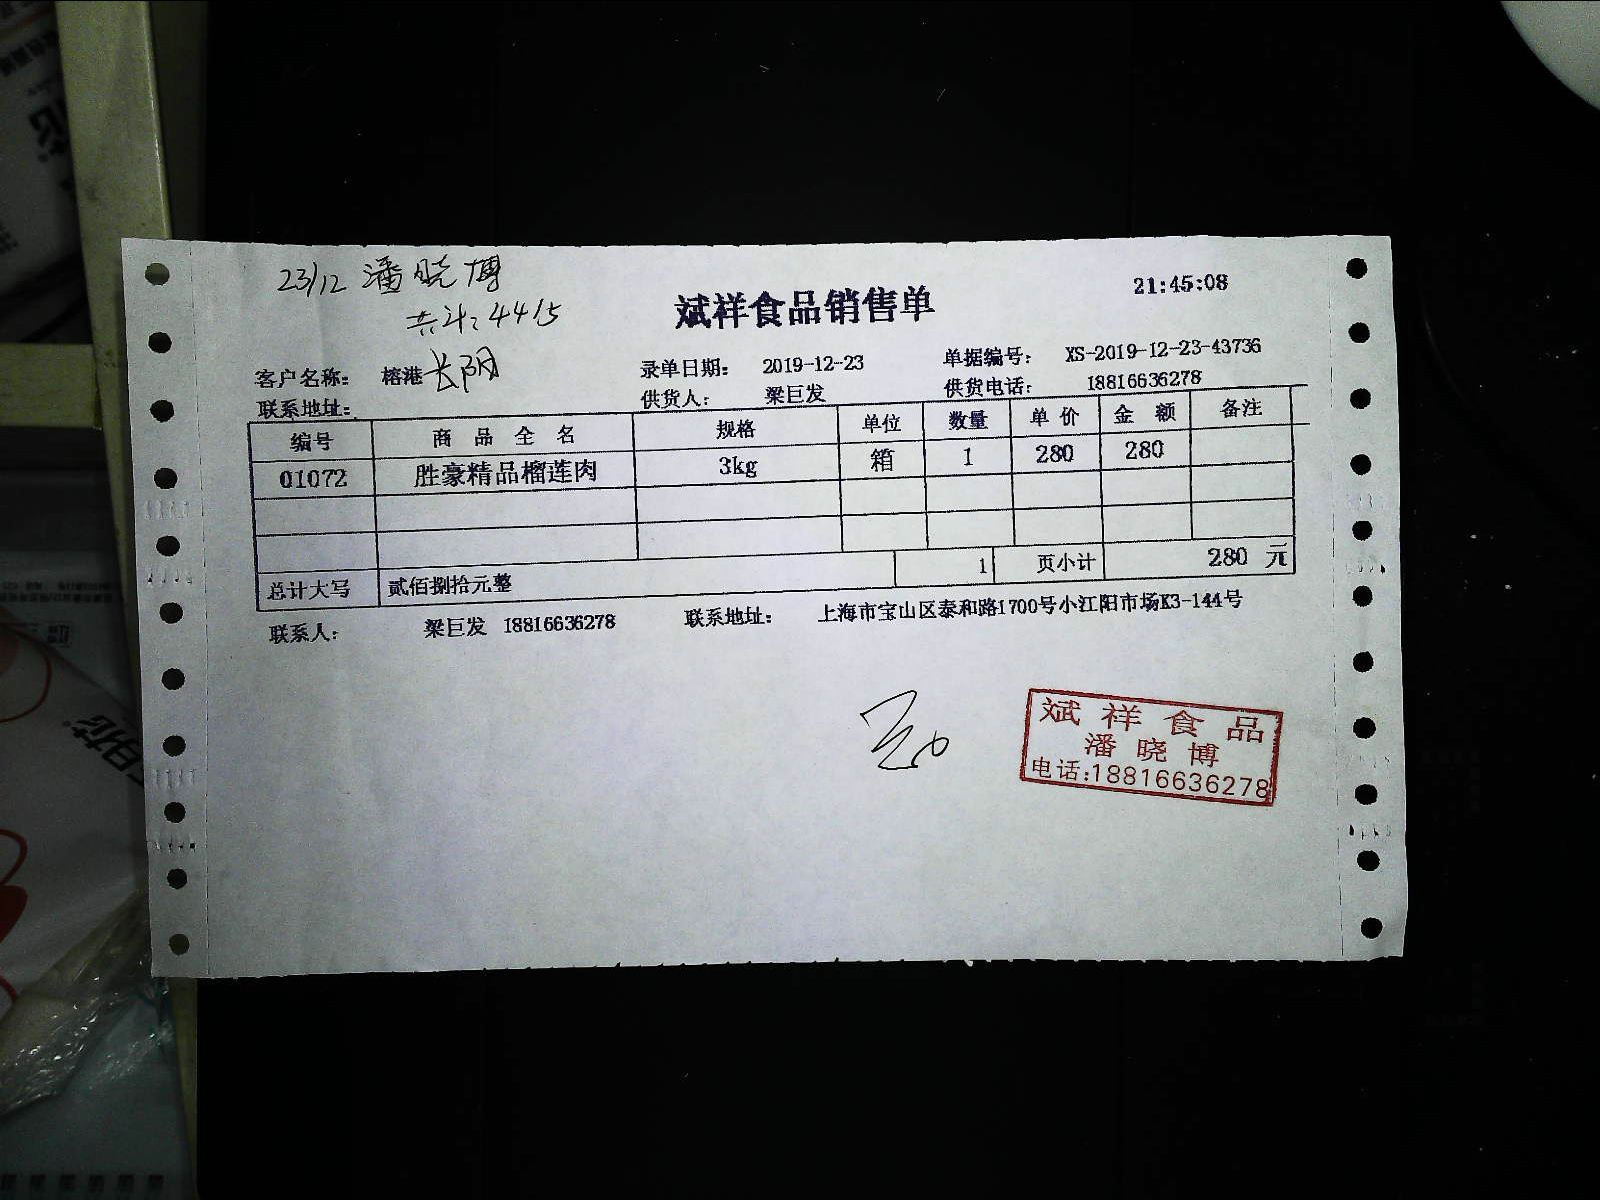 23/12 潘晓博
共计:4415
斌祥食品销售单
21:45:08
客户名称: 榕港 长阳 录单日期: 2019-12-23 单据编号: XS-2019-12-23-43736
联系地址: 供货人: 梁巨发 供货电话: 18816636278
编号 商品全名 规格 单位 数量 单价 金额 备注
01072 胜豪精品榴莲肉 3kg 箱 1 280 280
总计大写 贰佰捌拾元整 1 页小计 280 元
联系人: 梁巨发 18816636278 联系地址: 上海市宝山区泰和路1700号小江阳市场K3-144号
斌祥食品
潘晓博
电话:18816636278